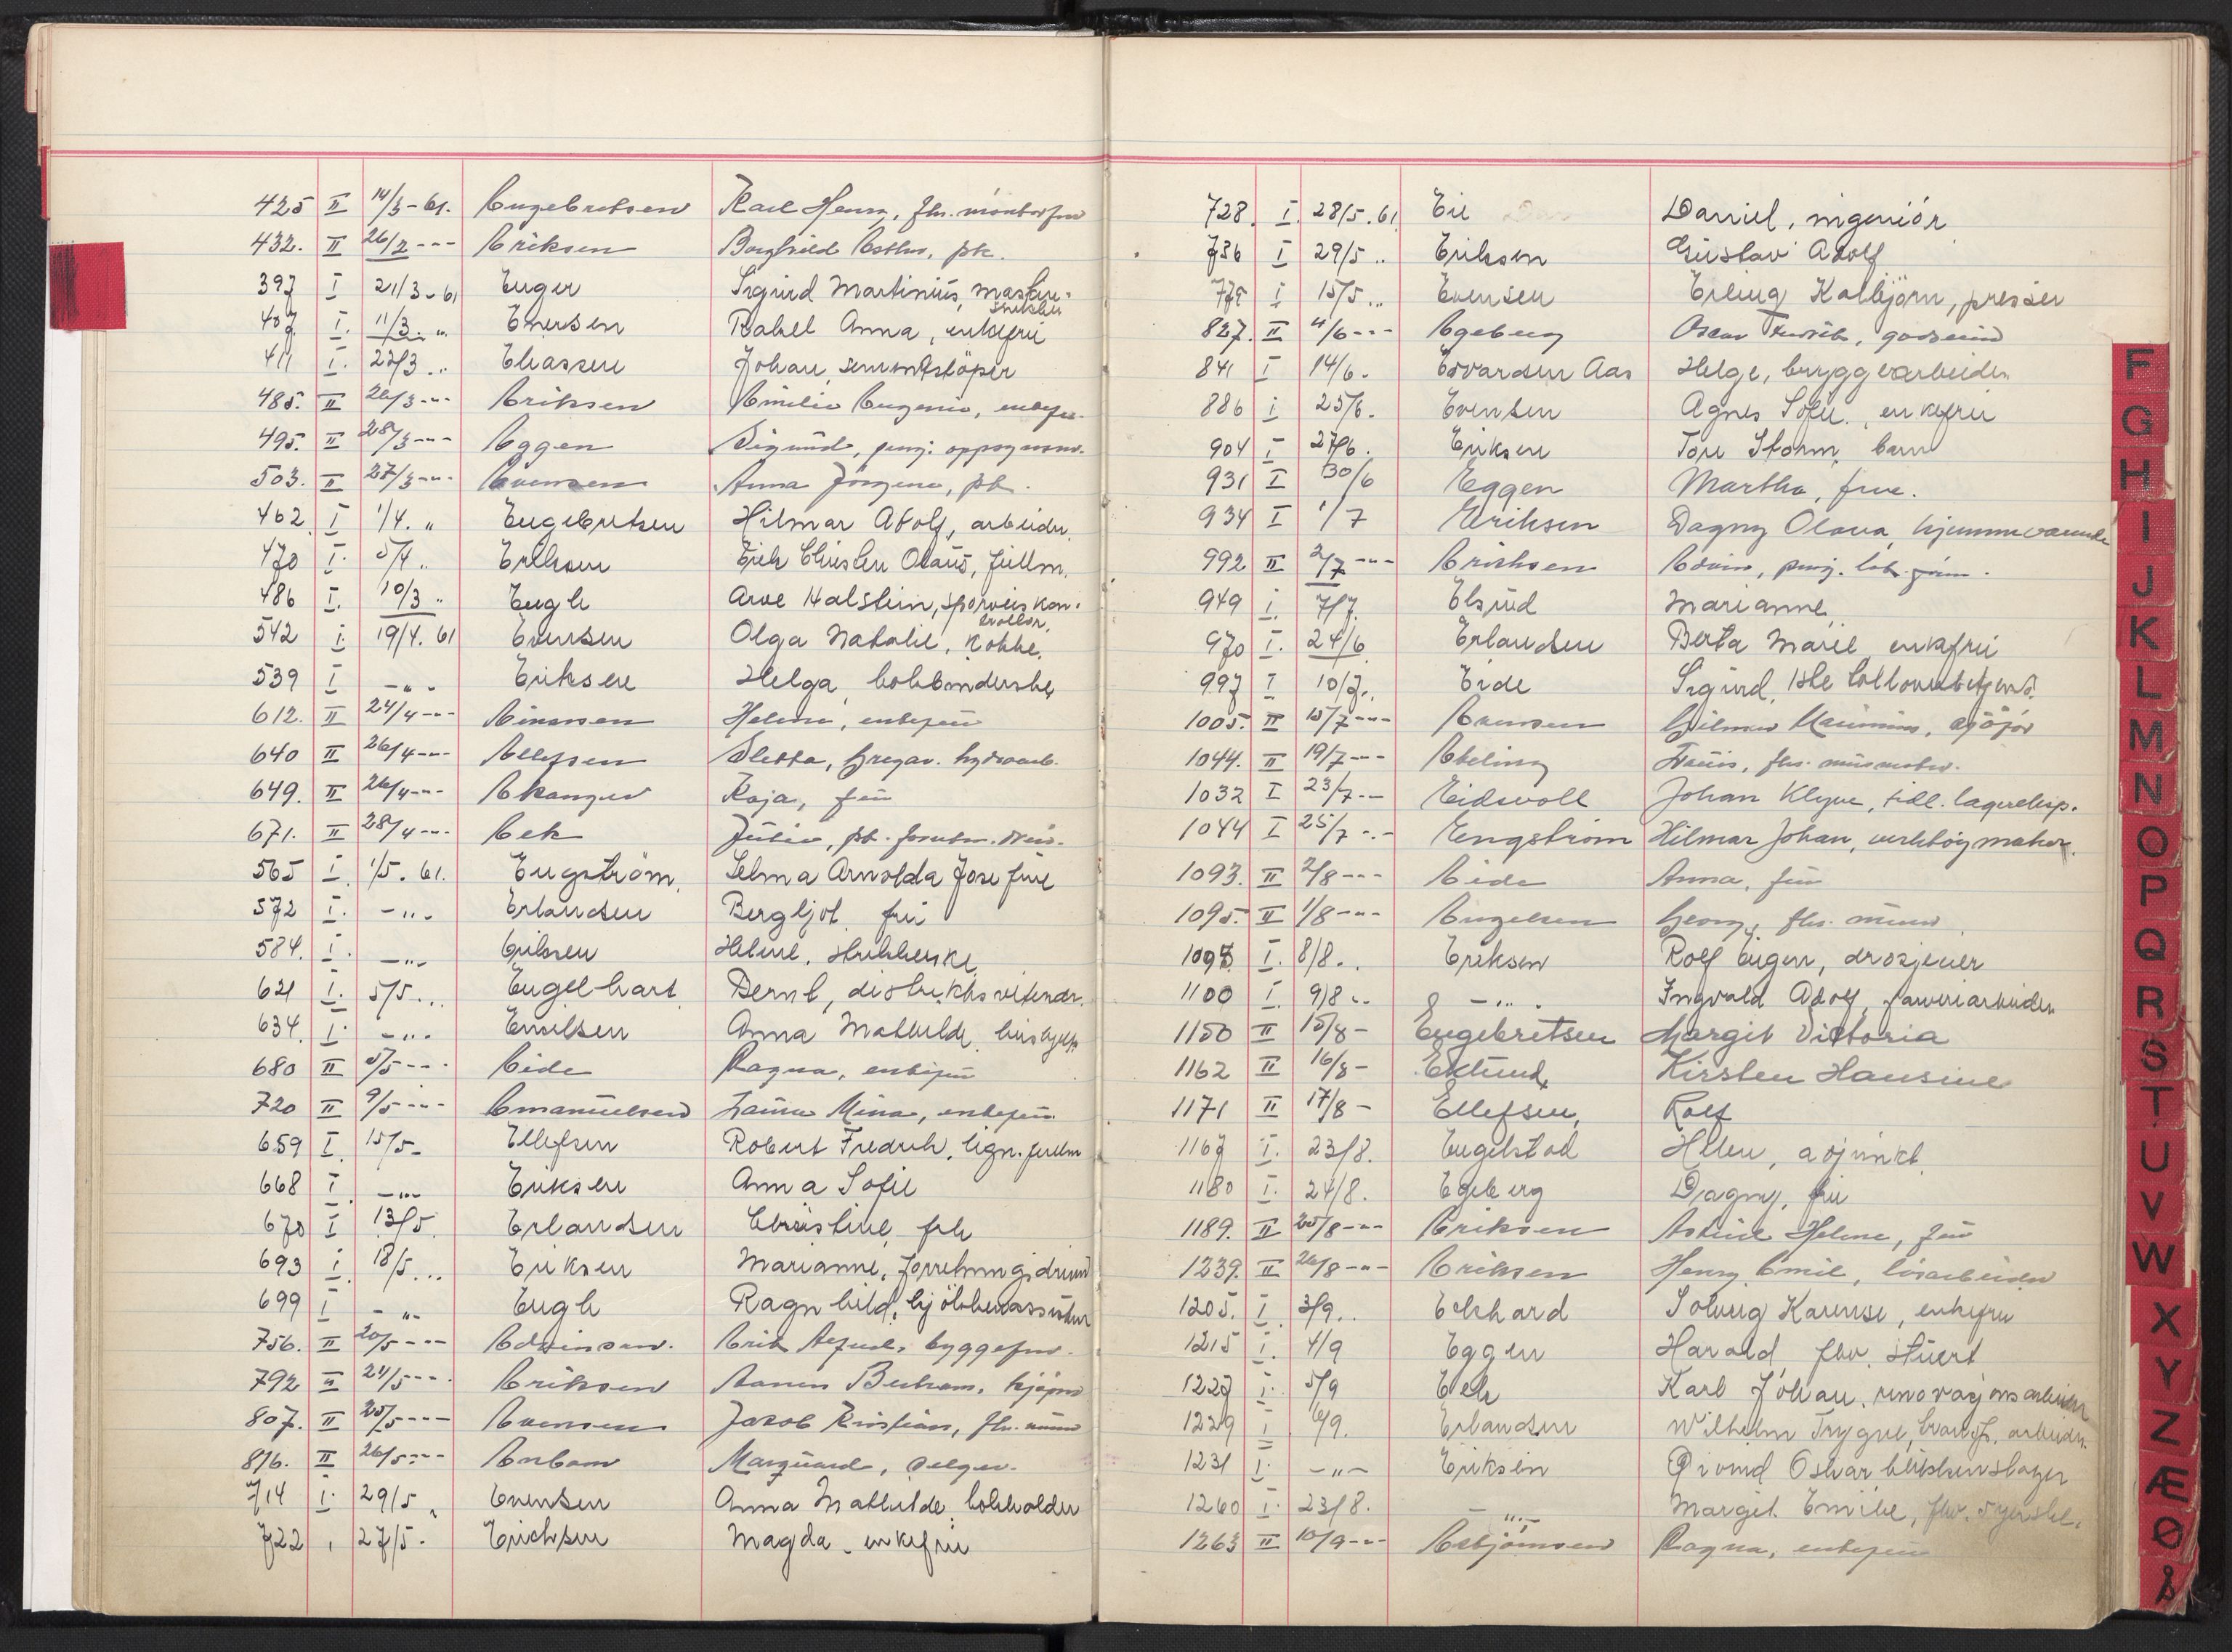 425 II 14/3-61. Engebretsen Karl Henry, fhv. montør
432. II 26/2 --- Eriksen Borghild Esther, pk.
397 I 21/3-61 Enger Sigurd Martinius, maskin-
snekker
407 I. 11/3. " Enersen Rakel Anna, enkefru
411 I. 22/3 .. Eliassen Johan, sementstöper
485. II 26/3 -"- Eriksen Emilie Eugenie, enkefru
495. II 28/3 --- Eggen Sigurd, pensj.
503. II 27/3 -"- Evensen Anna Jörgine, pk.
462 I 1/4. " Engebretsen Hilmar Adolf, arbeider
470 I. 5/4 .. Eriksen Erik Christen Olaus, fullm.
486 I. 10/3 " Engh Arve Halstein, sporveiskon-
trollør.
542 I. 19/4. 61 Evensen Olga Natalie, kokke.
539 I -"- Eriksen Helga, bokbinderske
612. II 24/4 --- Einarsen Helene, enkefru
640 II 26/4 --- Ellefsen
649. II 26/4 -"- Ekanger Kaja, fru
671. II 28/4 --- Eek
565 I 1/5. 61. Engström Selma Arnolda Josefine
572 I. -"- Erlandsen Bergljot fru
584. I. -"- Eriksen Helene, strikkerske
621 I. 5/5 ... Engelhart Bernt,
634. I. -"- Emilsen Anna Mathilde, hushjelp
680 II 5/5 --- Eide Ragna, enkefru
720 II 9/5 --- Emanuelsen Laura Mina, enkefru
659 I. 15/5- Ellefsen Robert Fredrik, lign. fullm
668 I. -"- Eriksen Anna Sofie
670 I 13/5. Erlandsen Christine, frk
693 I. 18/5 ... Eriksen Marianne, forretningsdriv.
699 I -"- Engh Ragnhild, kjökkenassistent
756. II 20/5 --- Edvinsen. Erik
792 II 24/5 --- Eriksen
807. II 25/5 --- Evensen Jakob Kristian, fhv.
816. II 26/5 --- Marquard, selger.
714 I. 29/5 " Evensen Anna Mathilde, bokholder
722 " 27/5. Erichsen Magda - enkefru
728. I. 28/5. 61. Eie Daniel, ingeniør
736 I 29/5 .. Eriksen Gustav Adolf
775 I 15/5 ... Evensen Erling Kolbjørn, presser
827. II 4/6 --- Egeberg Oscar
841 I 14/6. Edvardsen Aas Helge, bryggearbeider
886 I 25/6. Evensen Agnes Sofie, enkefru
904 I 27/6. Eriksen Tore Storm, barn
931 I 30/6 Eggen Martha, frue.
934 I 1/7 Eriksen Dagny Olava, hjemmeværende
992 II 2/7 --- Erichsen Edvin, pensj.
949 I. 7/7. Elsrud Marianne
970 I. 24/6 Erlandsen Berta Marie, enkefru
997 I 10/7.. Eide Sigurd,
1005. II 15/7 --- Evensen Hilmar
1044. II 19/7 --- Ebeling
1032 I 23/7 -- Eidsvoll Johan Klyve, tidl. lagereksp.
1044 I 25/7 -.- Engström Hilmar Johan, verktøymaker.
1093. II 2/8 --- Eide Anna, fru
1095. II 1/8 --- Engelsen Georg, fhv.
1098 I. 8/8 .. Eriksen Rolf Eugen, drosjeeier
1100 I. 9/8 .. -"- Ingvald Adolf, garveriarbeider
1150 II 15/8 - Engebretsen Margit Victoria
1162 II 16/8 - Eklund, Kirsten Hansine
1171 II 17/8 - Ellefsen, Rolf
1167 I. 23/8. Engelstad Ellen, adjunkt.
1180 I. 24/8. Egeberg Dagny, fru
1189. II 25/8 --- Eriksen Astrid Helene, fru
1239. II 26/8 --- Eriksen Henry Emil, løsarbeider
1205. I. 3/9.. Eckhard Solveig Karense, enkefru
1215 I. 4/9 Eggen Harald, fhv. stuert
1227 I. 5/9 Eek Karl Johan, renovasjonsarbeider
1229 I 6/9. Erlandsen Wilhelm Trygve, transp. arbeider.
1231 I. -"- Eriksen Øivind Oskar, blikkenslager
1260 I. 23/8. -"- Margit Emilie, fhv. syerske.
1263 II 10/9 --- Esbjørnsen Ragna, enkefru
F
G
H
I
J
K
L
M
N
O
P
Q
R
S
T
U
V
W
X
Y
Z
Æ
Ø
Å